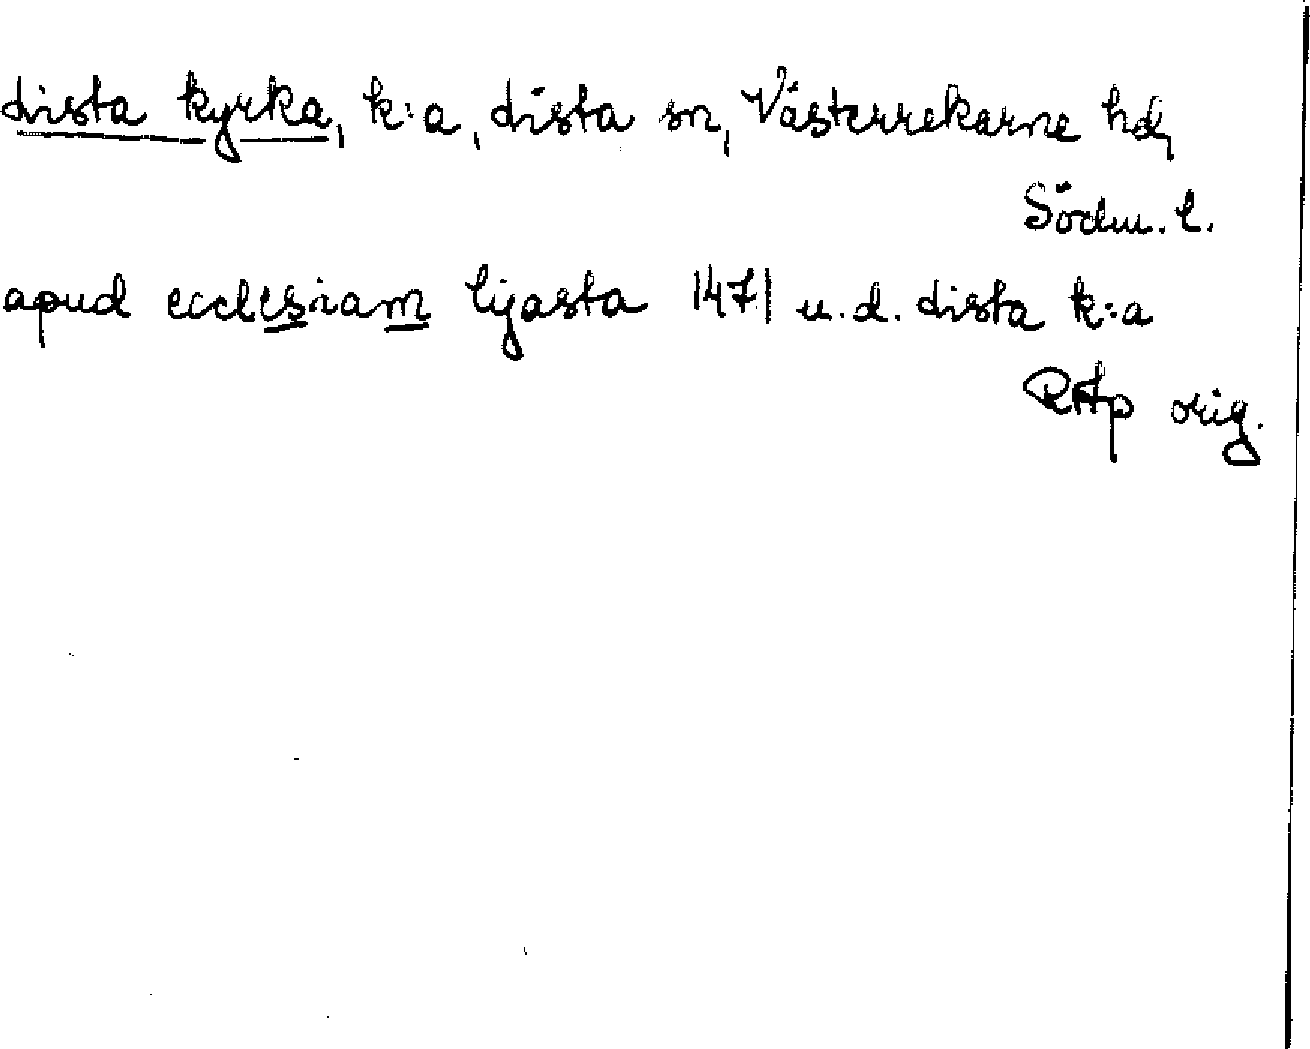 Lista kyrka, k:a, Lista sn, Västerrekarne hd,
Södm. l.
apud ecclesiam lijasta 1471 u. d. Lista k:a
RAp orig.